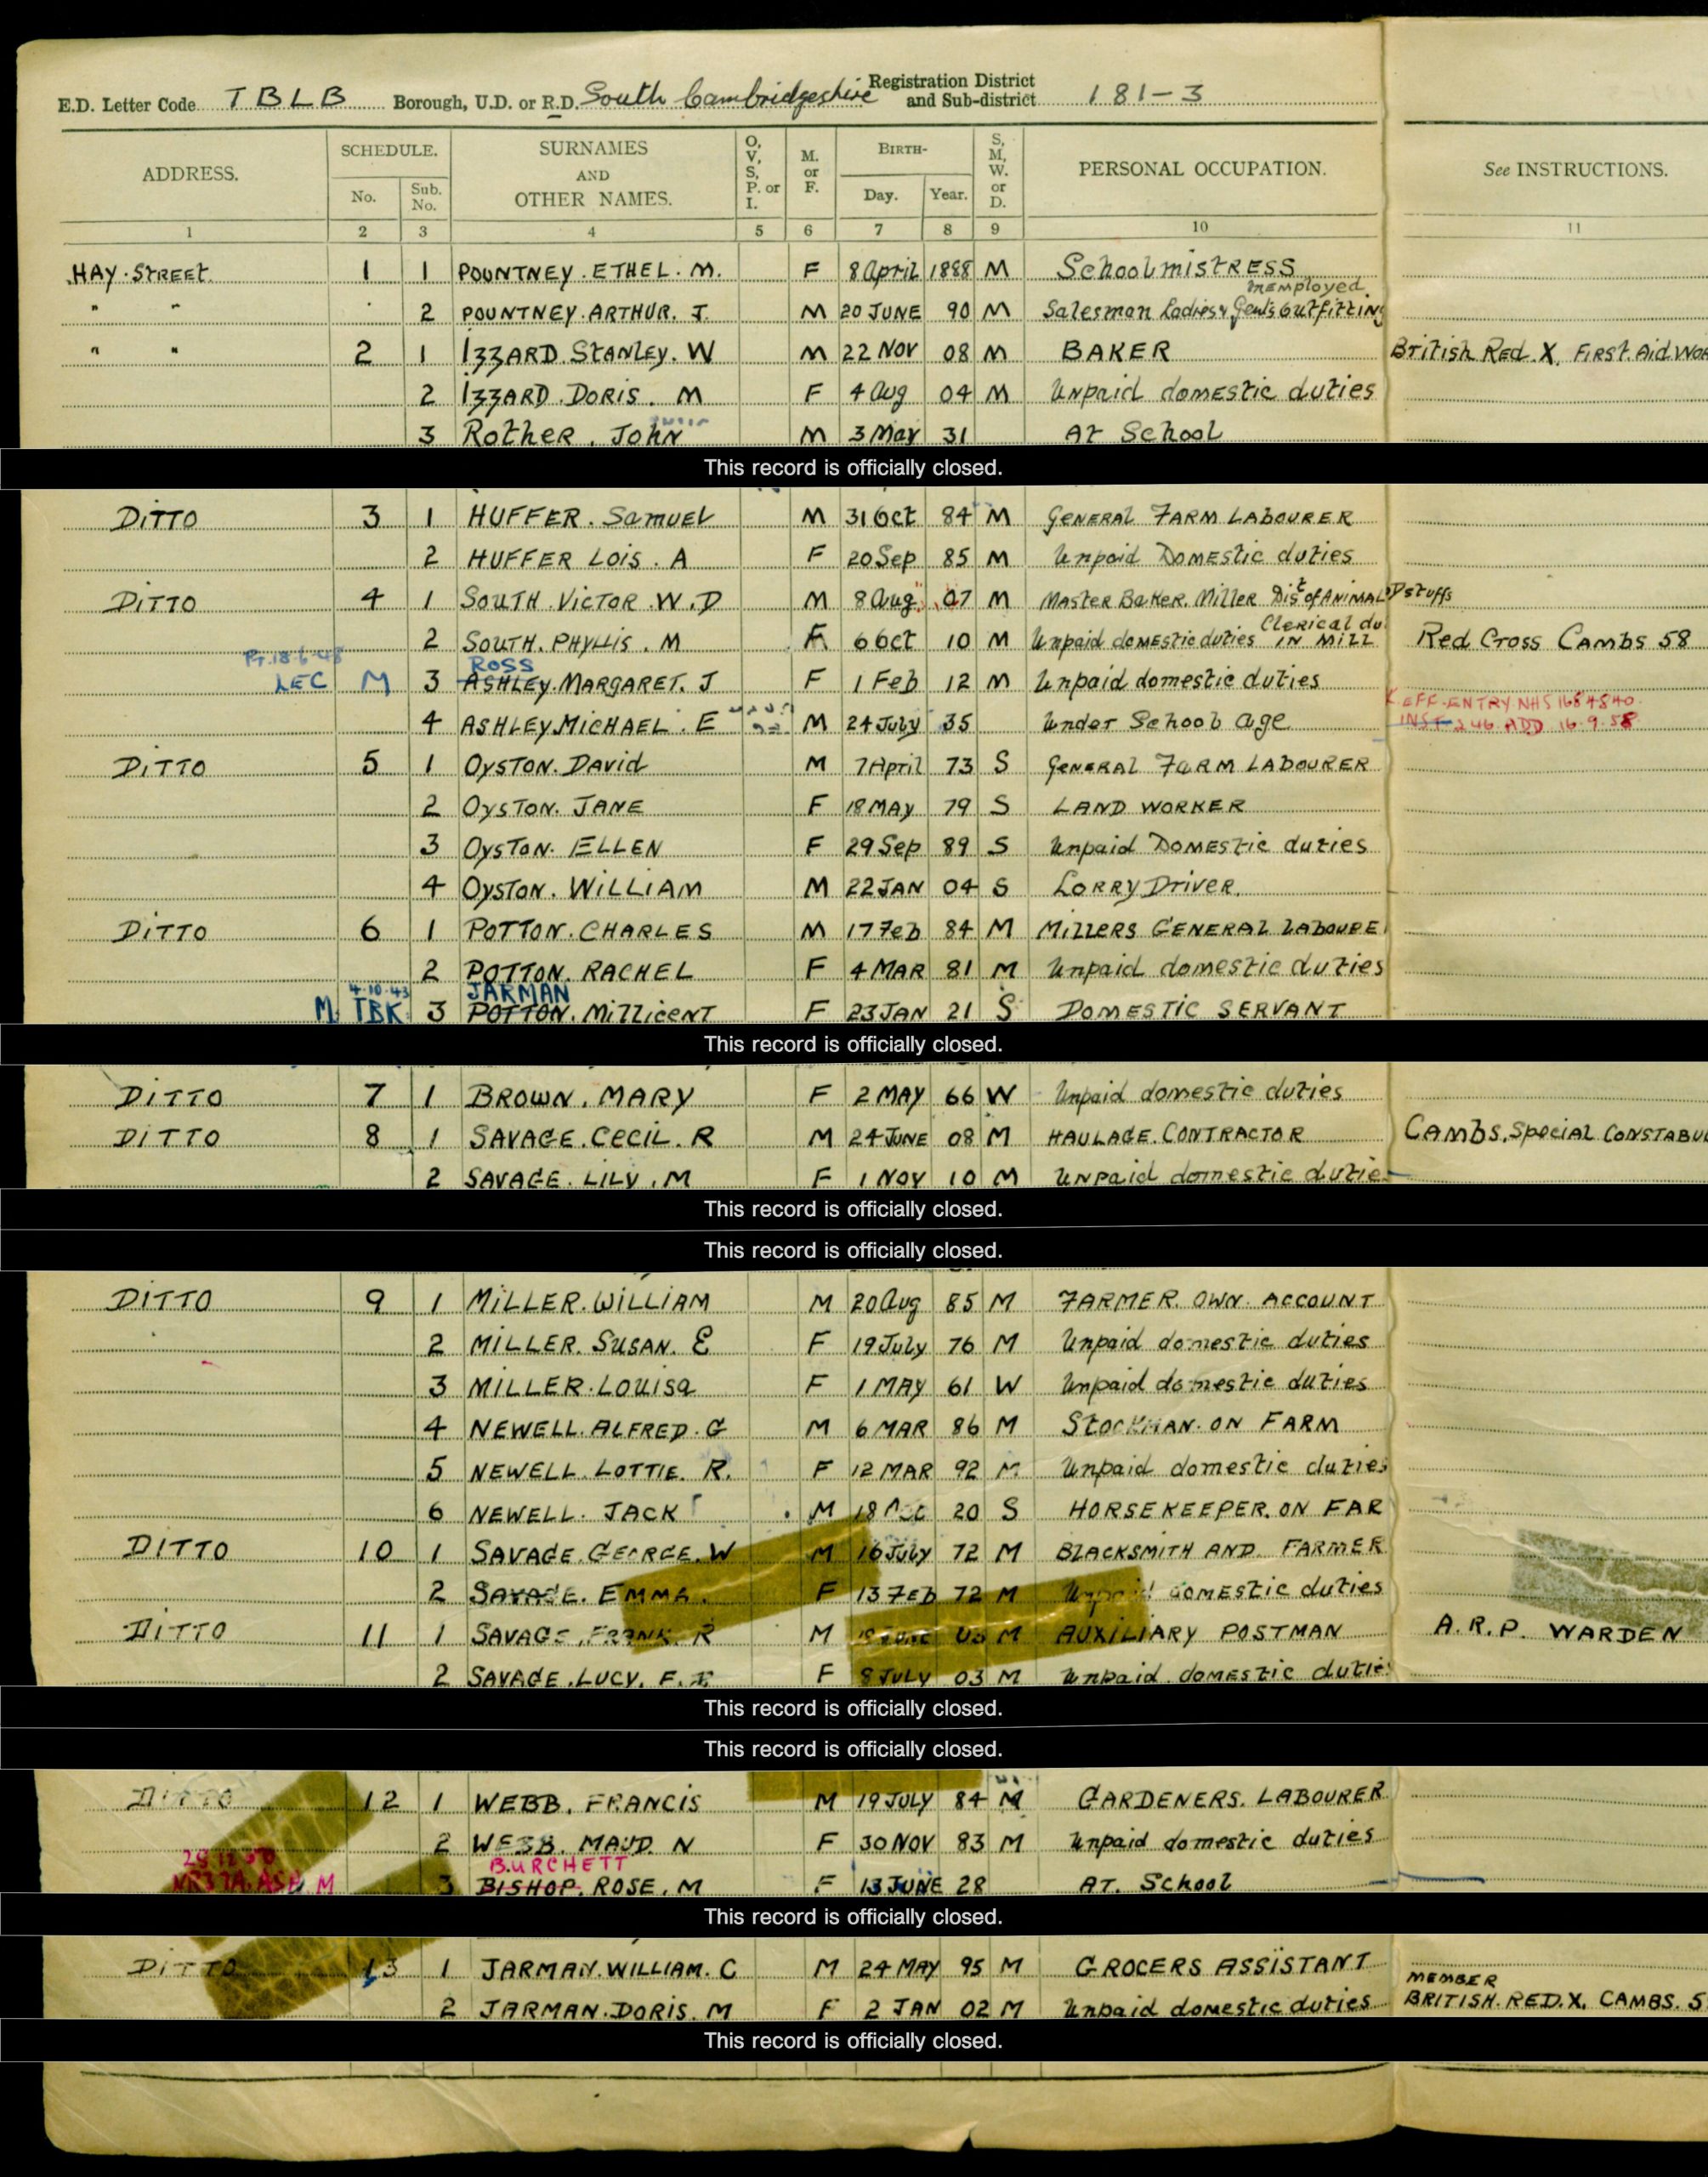 E.D. Letter Code TBLB Borough, U.D. or R.D. South Cambridgeshire Registration District and Sub-district 181-3
ADDRESS. SCHEDULE. No. Sub. No. SURNAMES AND OTHER NAMES. O, V, S, P. or I. M. or F. BIRTH- Day. Year. S, M, W. or D. PERSONAL OCCUPATION. See INSTRUCTIONS.
1 2 3 4 5 6 7 8 9 10 11
HAY STREET 1 1 POUNTNEY. ETHEL. M. F 8 April 1888 M Schoolmistress
unemployed
" " 2 POUNTNEY. ARTHUR. J. M 20 JUNE 90 M Salesman Ladies & Gent's Outfitting
" " 2 1 IZZARD. STANLEY. W M 22 NOV 08 M BAKER British Red. X. First. Aid
2 IZZARD. DORIS. M F 4 Aug 04 M Unpaid domestic duties
3 Rother. John M 3 May 31 At School
This record is officially closed.
DITTO 3 1 HUFFER. Samuel M 31 Oct 84 M GENERAL FARM LABOURER
2 HUFFER LOIS. A F 20 Sep 85 M Unpaid Domestic duties
DITTO 4 1 SOUTH VICTOR. W. D M 8 Aug 07 M MASTER BAKER. Miller Dist of ANIMAL
Clerical du
2 SOUTH. PHYLLIS. M F 6 Oct 10 M Unpaid domestic duties IN MILL Red Cross Cambs 58
ROSS
LEC M 3 ASHLEY. MARGARET. J F 1 Feb 12 M Unpaid domestic duties
4 ASHLEY MICHAEL. E M 24 July 35 Under School age
EFF. ENTRY. NHS 1684840
INST 246. ADD 16.9.58
DITTO 5 1 OYSTON. David M 7 April 73 S GENERAL FARM LABOURER
2 OYSTON. JANE F 18 MAY 79 S LAND WORKER
3 OYSTON. ELLEN F 29 Sep 89 S Unpaid Domestic duties
4 OYSTON. WILLIAM M 22 JAN 04 S LORRY Driver.
DITTO 6 1 POTTON. CHARLES M 17 Feb 84 M MILLERS GENERAL LABOURE
2 POTTON. RACHEL F 4 MAR 81 M Unpaid domestic duties
4.10.43 JARMAN
M TBK 3 POTTON. Millicent F 23 JAN 21 S DOMESTIC SERVANT
This record is officially closed.
DITTO 7 1 BROWN. MARY F 2 MAY 66 W Unpaid domestic duties
DITTO 8 1 SAVAGE. CECIL. R M 24 JUNE 08 M HAULAGE. CONTRACTOR Cambs. Special CONSTABU
2 SAVAGE. LILY. M F 1 NOV 10 M Unpaid domestic dutie
This record is officially closed.
This record is officially closed.
DITTO 9 1 MILLER. WILLIAM M 20 Aug 85 M FARMER. OWN. ACCOUNT
2 MILLER. SUSAN. E F 19 July 76 M Unpaid domestic duties
3 MILLER. Louisa F 1 MAY 61 W Unpaid domestic duties
4 NEWELL. ALFRED. G M 6 MAR 86 M STOCKMAN. ON FARM
5 NEWELL. LOTTIE. R. F 12 MAR 92 M Unpaid domestic duties
6 NEWELL. JACK M 18 20 S HORSEKEEPER. ON FAR
DITTO 10 1 SAVAGE. GEORGE. W M 16 July 72 M BLACKSMITH AND FARMER
2 SAVAGE. EMMA. F 13 FEB 72 M Unpaid domestic duties
DITTO 11 1 SAVAGE. FRANK. R M M AUXILIARY POSTMAN A.R.P. WARDEN
2 SAVAGE. LUCY. F. F 8 JULY 03 M Unpaid domestic duties
This record is officially closed.
This record is officially closed.
DITTO 12 1 WEBB. FRANCIS M 19 JULY 84 M GARDENERS. LABOURER
2 WEBB. MAUD. N F 30 NOV 83 M Unpaid domestic duties
BURCHETT
M 3 BISHOP. ROSE. M F 13 JUNE 28 AT. School
This record is officially closed.
DITTO 13 1 JARMAN. WILLIAM. C M 24 MAY 95 M GROCERS ASSISTANT
MEMBER
2 JARMAN. DORIS. M F 2 JAN 02 M Unpaid domestic duties BRITISH. RED. X. CAMBS. 5
This record is officially closed.